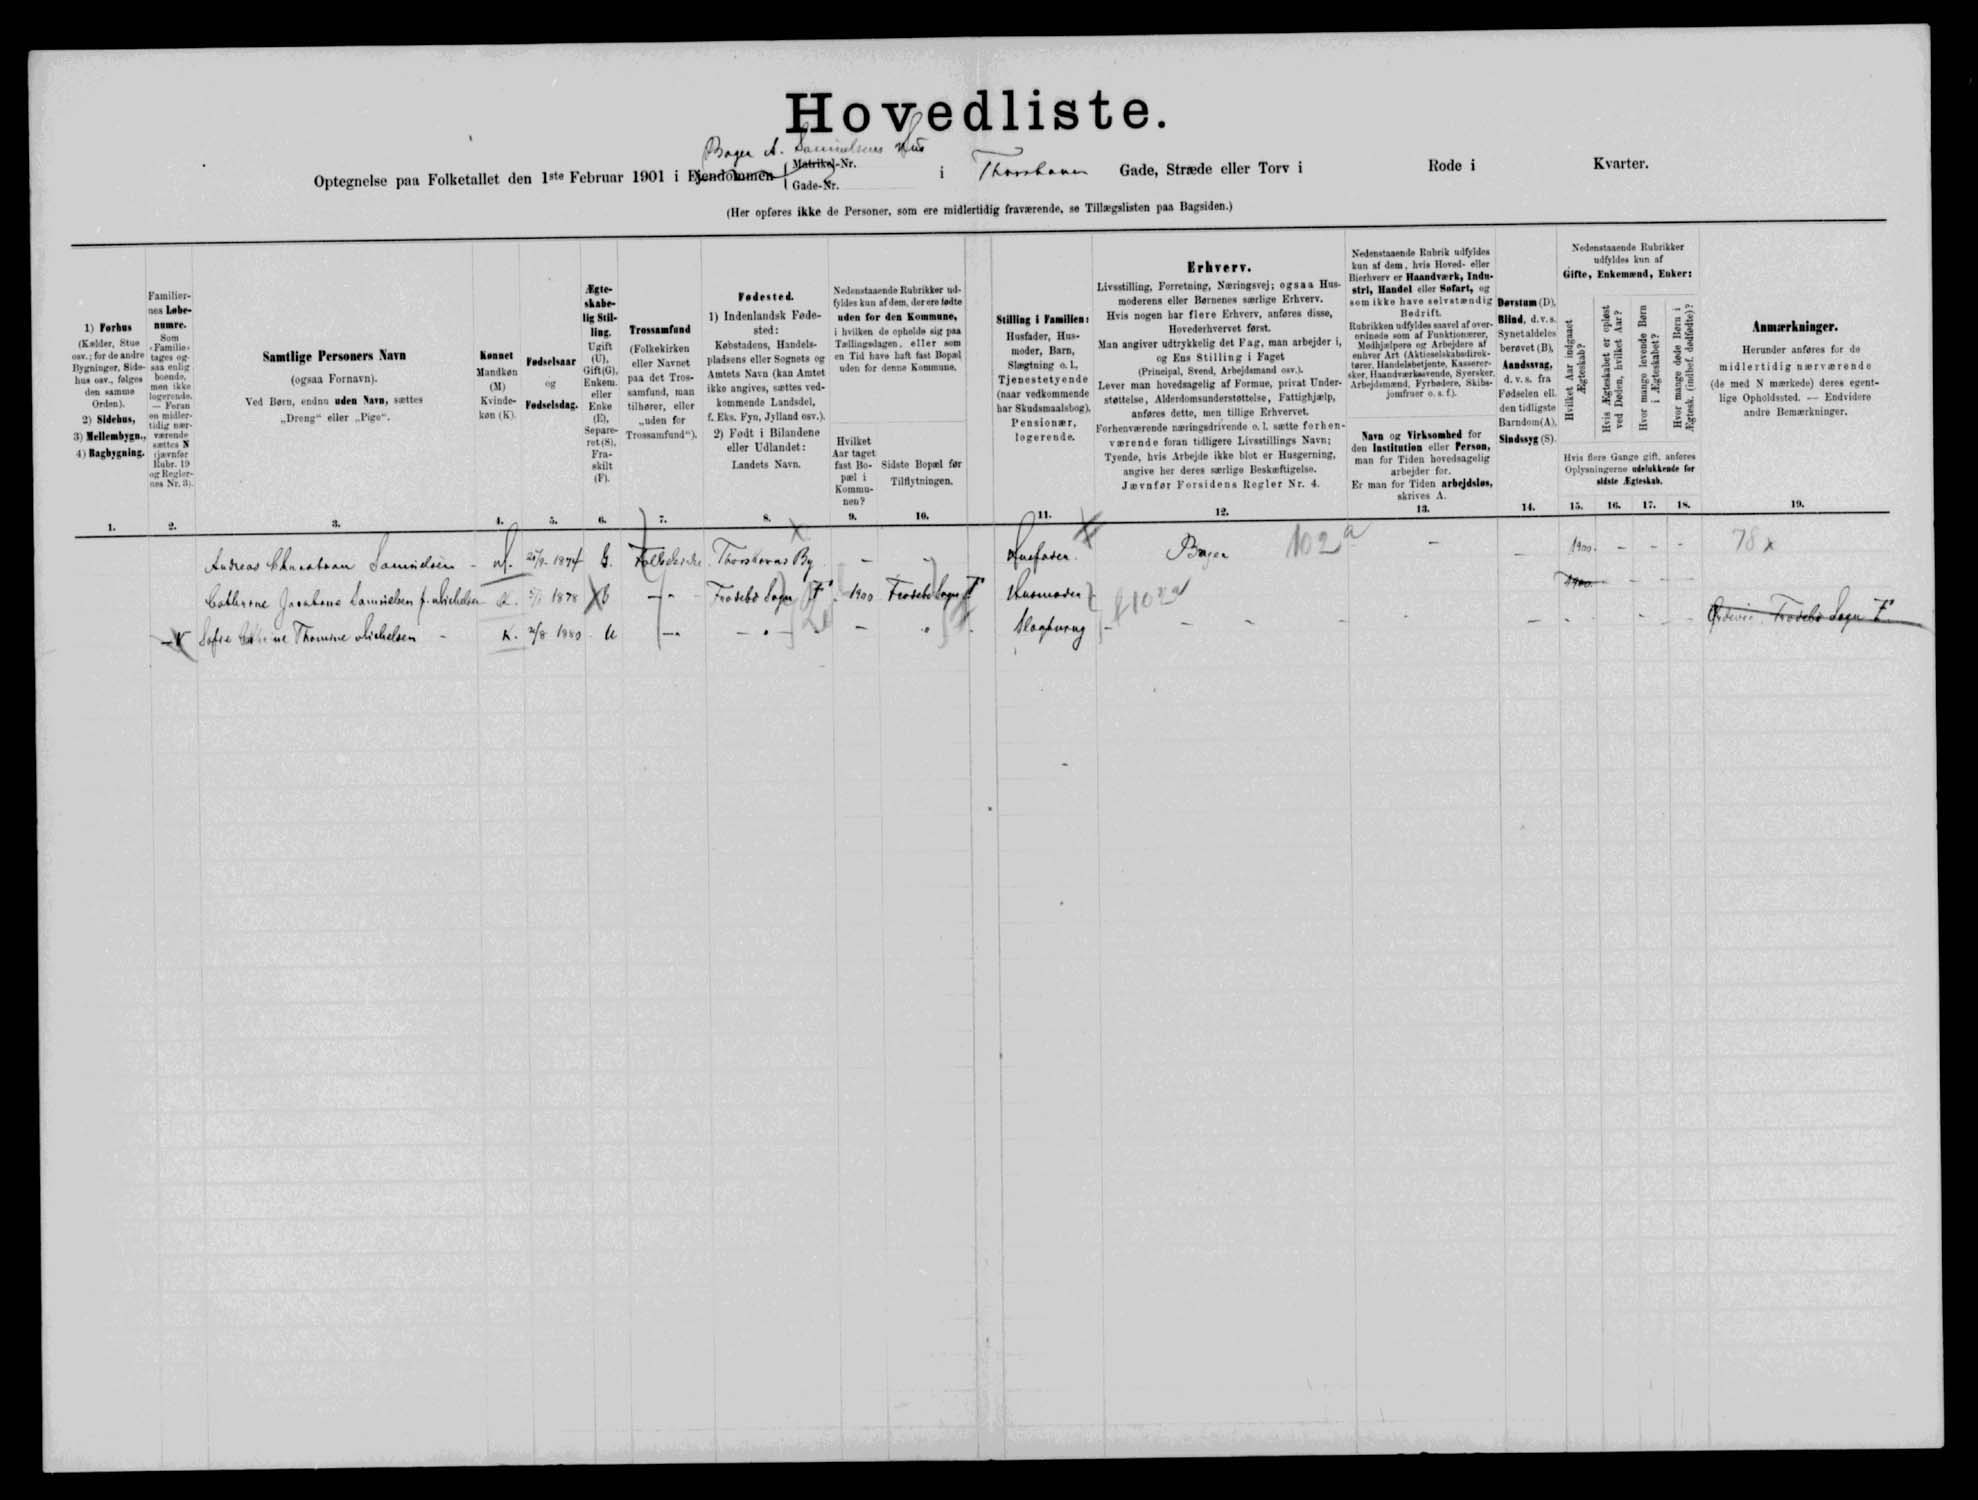 Hovedliste.
Bager A. Samuelsens Hus
Optegnelse paa Folketallet den 1ste Februar 1901 i Ejendommen { Matrikel-Nr. Gade-Nr. i Thorshavn Gade, Stræde eller Torv i Rode i Kvarter.
(Her opføres ikke de Personer, som ere midlertidig fraværende, se Tillægslisten paa Bagsiden.)
1) Forhus
(Kælder, Stue
osv.; for de andre
Bygninger, Side-
hus osv., følges
den samme
Orden).
2) Sidehus,
3) Mellembygn.,
4) Bagbygning.
1.
Familier-
nes Løbe-
numre.
Som
»Familie«
tages og-
saa enlig
boende,
men ikke
logerende.
— Foran
en midler-
tidig nær-
værende
sættes N
(jævnfør
Rubr. 19
og Regler-
nes Nr. 3).
2.
Samtlige Personers Navn
(ogsaa Fornavn).
Ved Børn, endnu uden Navn, sættes
„Dreng“ eller „Pige“.
3.
Kønnet
Mandkøn
(M)
Kvinde-
køn (K).
4.
Fødselsaar
og
Fødselsdag.
5.
Ægte-
skabe-
lig Stil-
ling.
Ugift
(U),
Gift(G),
Enkem.
eller
Enke
(E),
Separe-
ret (S),
Fra-
skilt
(F).
6.
Trossamfund
(Folkekirken
eller Navnet
paa det Tros-
samfund, man
tilhører, eller
„uden for
Trossamfund“).
7.
Fødested.
1) Indenlandsk Føde-
sted:
Købstadens, Handels-
pladsens eller Sognets og
Amtets Navn (kan Amtet
ikke angives, sættes ved-
kommende Landsdel,
f. Eks. Fyn, Jylland osv.).
2) Født i Bilandene
eller Udlandet:
Landets Navn.
8.
Nedenstaaende Rubrikker ud-
fyldes kun af dem, der ere fødte
uden for den Kommune,
i hvilken de opholde sig paa
Tællingsdagen, eller som
en Tid have haft fast Bopæl
uden for denne Kommune.
Hvilket
Aar taget
fast Bo-
pæl i
Kommu-
nen?
9.
Sidste Bopæl før
Tilflytningen.
10.
Stilling i Familien:
Husfader, Hus-
moder, Barn,
Slægtning o. l.,
Tjenestetyende
(naar vedkommende
har Skudsmaalsbog),
Pensionær,
logerende.
11.
Erhverv.
Livsstilling, Forretning, Næringsvej; ogsaa Hus-
moderens eller Børnenes særlige Erhverv.
Hvis nogen har flere Erhverv, anføres disse,
Hovederhvervet først.
Man angiver udtrykkelig det Fag, man arbejder i,
og Ens Stilling i Faget
(Principal, Svend, Arbejdsmand osv.).
Lever man hovedsagelig af Formue, privat Under-
støttelse, Alderdomsunderstøttelse, Fattighjælp,
anføres dette, men tillige Erhvervet.
Forhenværende næringsdrivende o. l. sætte forhen-
værende foran tidligere Livsstillings Navn;
Tyende, hvis Arbejde ikke blot er Husgerning,
angive her deres særlige Beskæftigelse.
Jævnfør Forsidens Regler Nr. 4.
12.
Nedenstaaende Rubrik udfyldes
kun af dem, hvis Hoved- eller
Bierhverv er Haandværk, Indu-
stri, Handel eller Søfart, og
som ikke have selvstændig
Bedrift.
Rubrikken udfyldes saavel af over-
ordnede som af Funktionærer,
Medhjælpere og Arbejdere af
enhver Art (Aktieselskabsdirek-
tører, Handelsbetjente, Kasserer-
sker, Haandværkssvende, Syersker,
Arbejdsmænd, Fyrbødere, Skibs-
jomfruer o. s. f.).
Navn og Virksomhed for
den Institution eller Person,
man for Tiden hovedsagelig
arbejder for.
Er man for Tiden arbejdsløs,
skrives A.
13.
Døvstum (D),
Blind, d. v. s.
Synet aldeles
berøvet (B),
Aandssvag,
d. v. s. fra
Fødselen ell.
den tidligste
Barndom (A),
Sindssyg (S).
14.
Nedenstaaende Rubrikker
udfyldes kun af
Gifte, Enkemænd, Enker:
Hvilket Aar indgaaet
Ægteskab?
Hvis Ægteskabet er opløst
ved Døden, hvilket Aar?
Hvor mange levende Børn
i Ægteskabet?
Hvor mange døde Børn i
Ægtesk. (indbef. dødfødte)?
Hvis flere Gange gift, anføres
Oplysningerne udelukkende for
sidste Ægteskab.
15. 16. 17. 18.
Anmærkninger.
Herunder anføres for de
midlertidig nærværende
(de med N mærkede) deres egent-
lige Opholdssted. — Endvidere
andre Bemærkninger.
19.
Andreas Samuelsen - M. 1874 G. Folkekirke Thorshavns By - - Husfader. Bager 102a - - 1900. - - - 78 x
Cathrine Jacobine Samuelsen f. Michelsen K. 1878 G -"- Frodebø Sogn F. 1900 Frodebø Sogn F Husmoder 102a 1900. - -
N Sofie Thomine Michelsen - K. 2/8 1880 - U -"- -"- - " Slægtning - - - - - - - Frodebø Sogn F.